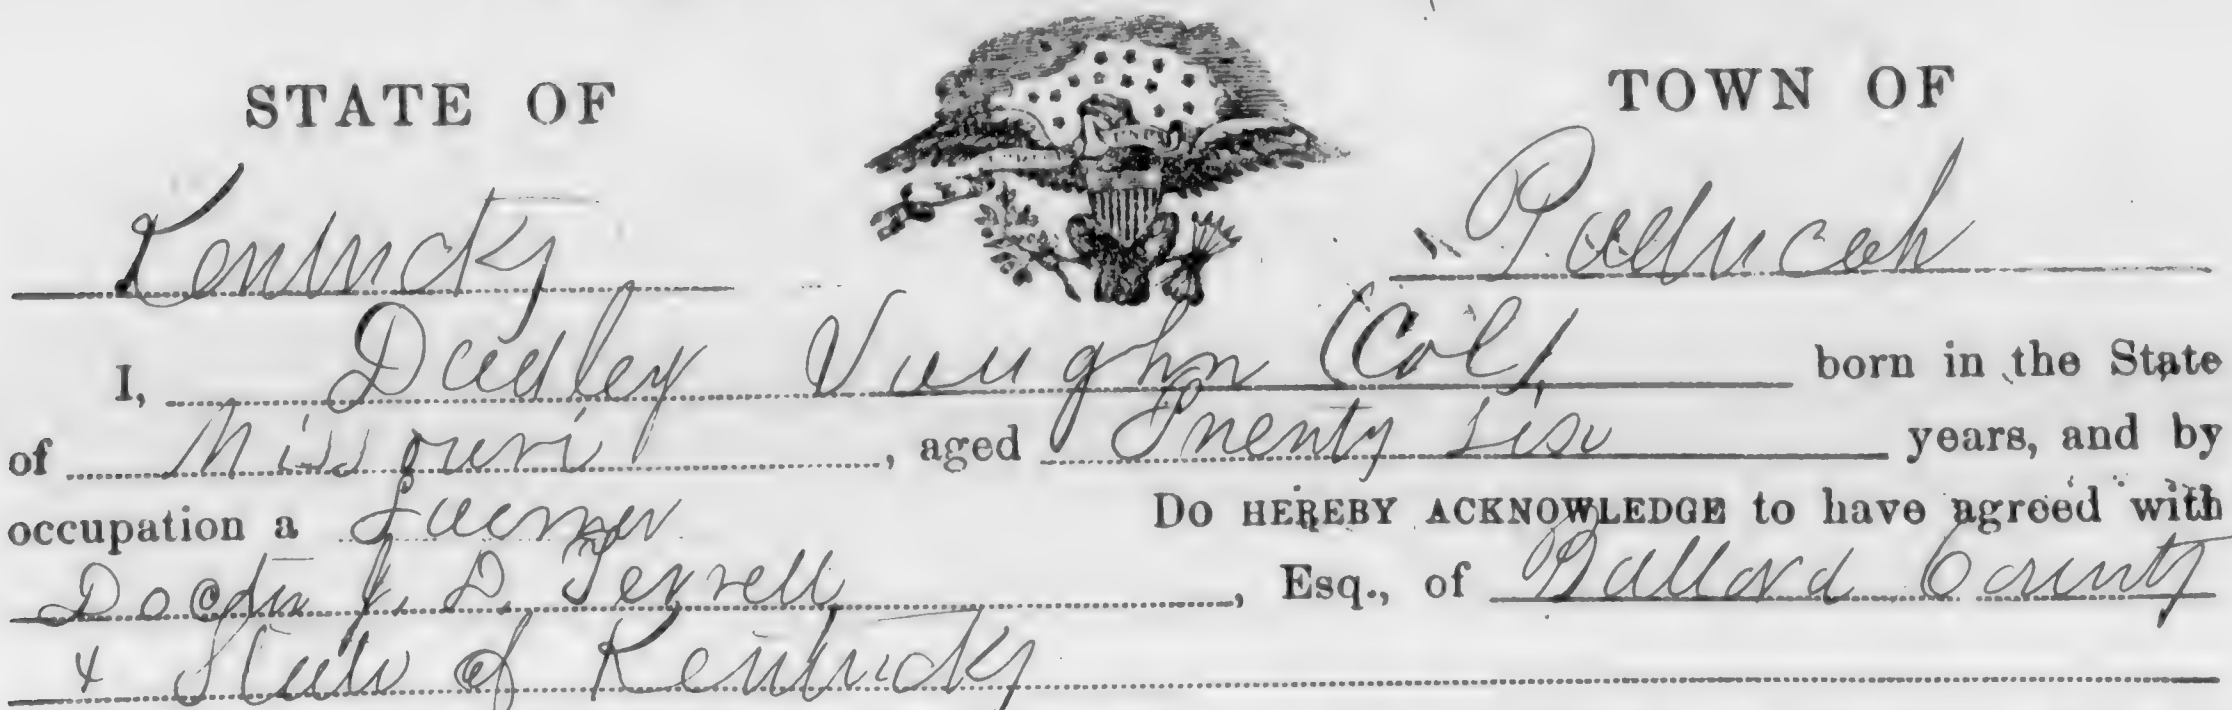 STATE OF
TOWN OF
Kentucky
Paducah
I, Dudley Vaughn (Col) born in the State
of Missouri, aged Twenty six years, and by
occupation a Farmer Do HEREBY ACKNOWLEDGE to have agreed with
Doctor J. D. Terrell, Esq., of Ballard County
& State of Kentucky